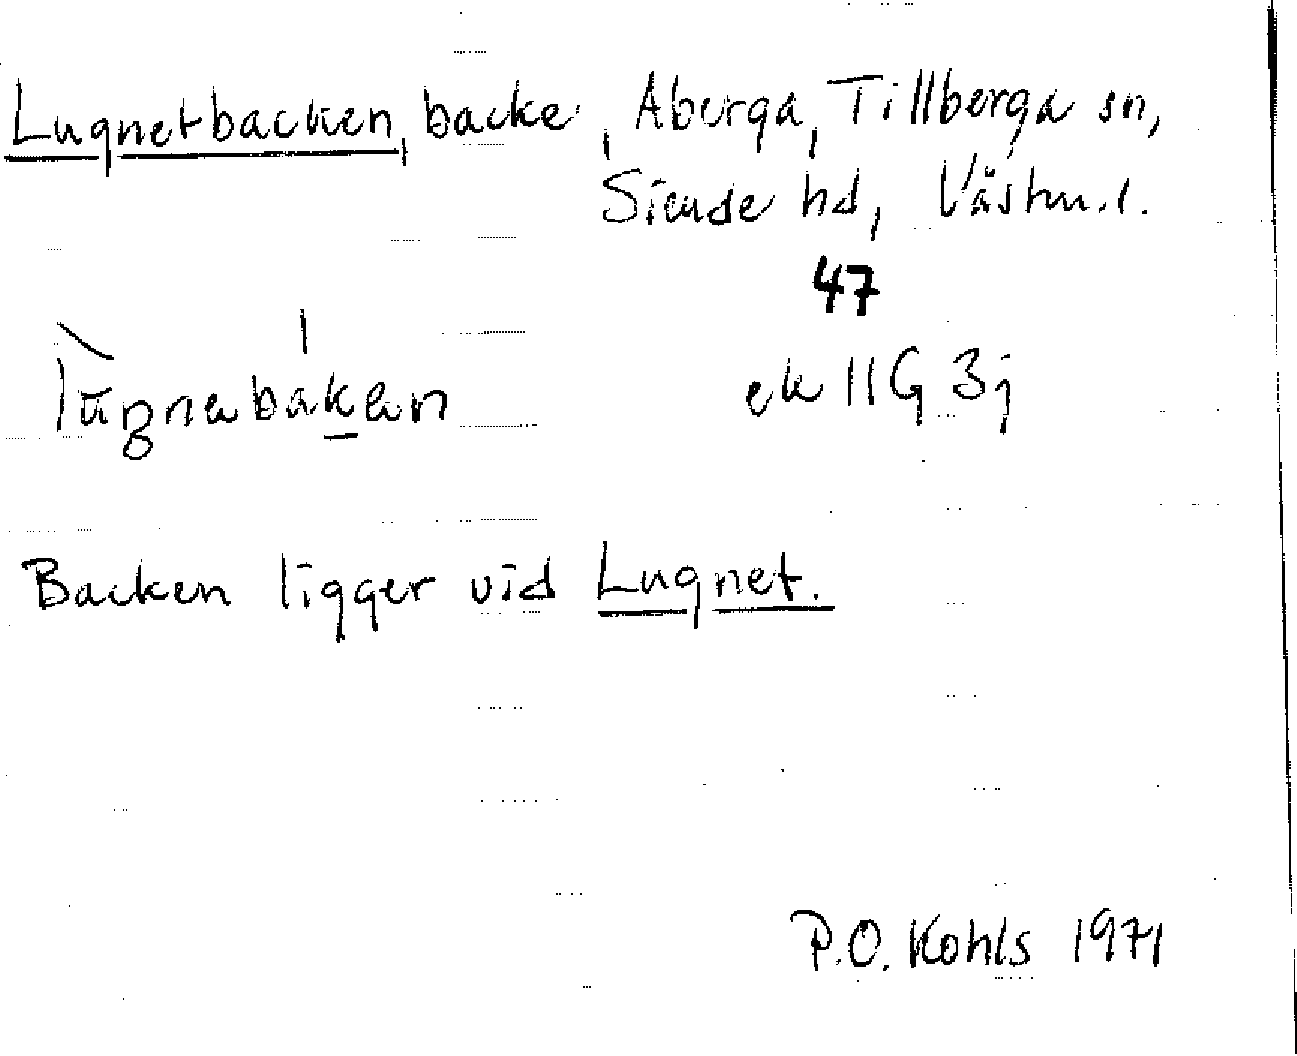 Lugnetbacken, backe, Aberga, Tillberga sn,
Siende hd, Västm. l.
47
ek 11G 3j
Backen ligger vid Lugnet.
P.O. Kohls 1971